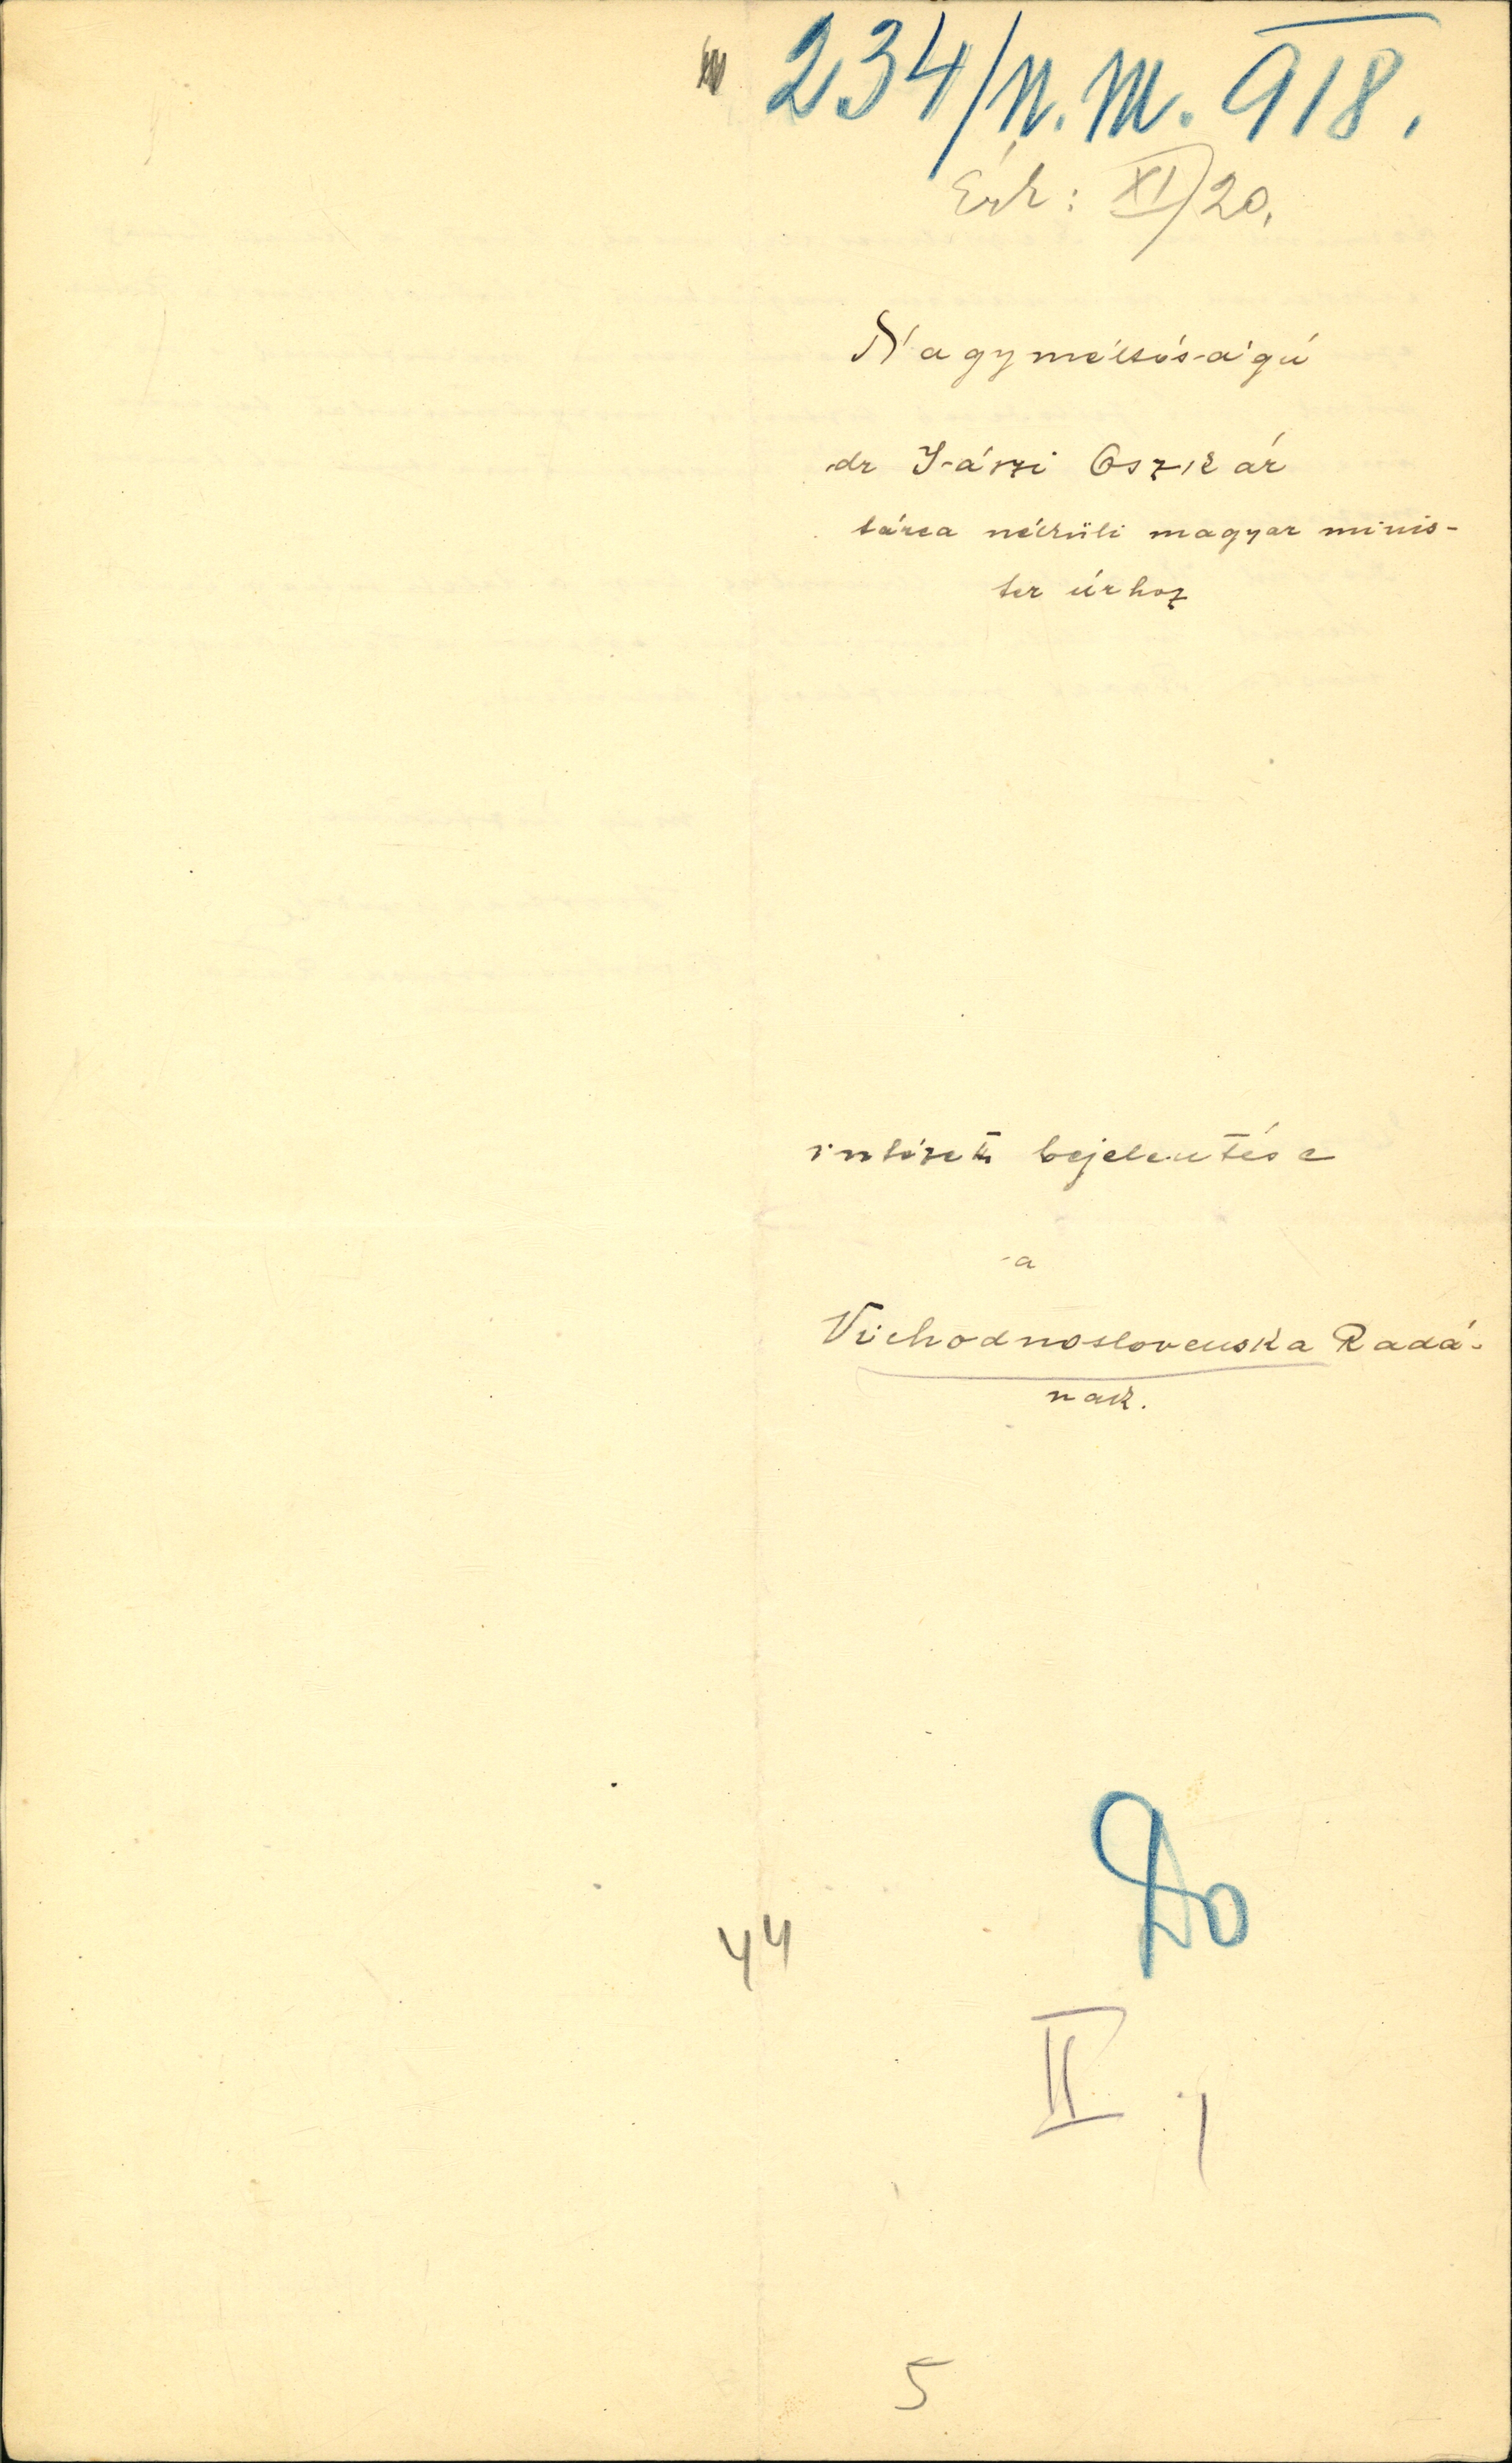 234/N.M. 918.
Érk: XI/20.
Nagyméltóságú
dr Jászi Oszkár
tárca nélküli magyar minis-
ter úrhoz
intézett bejelentése
a
Vüchodnoslovenska Radá-
nak.
44
II
5